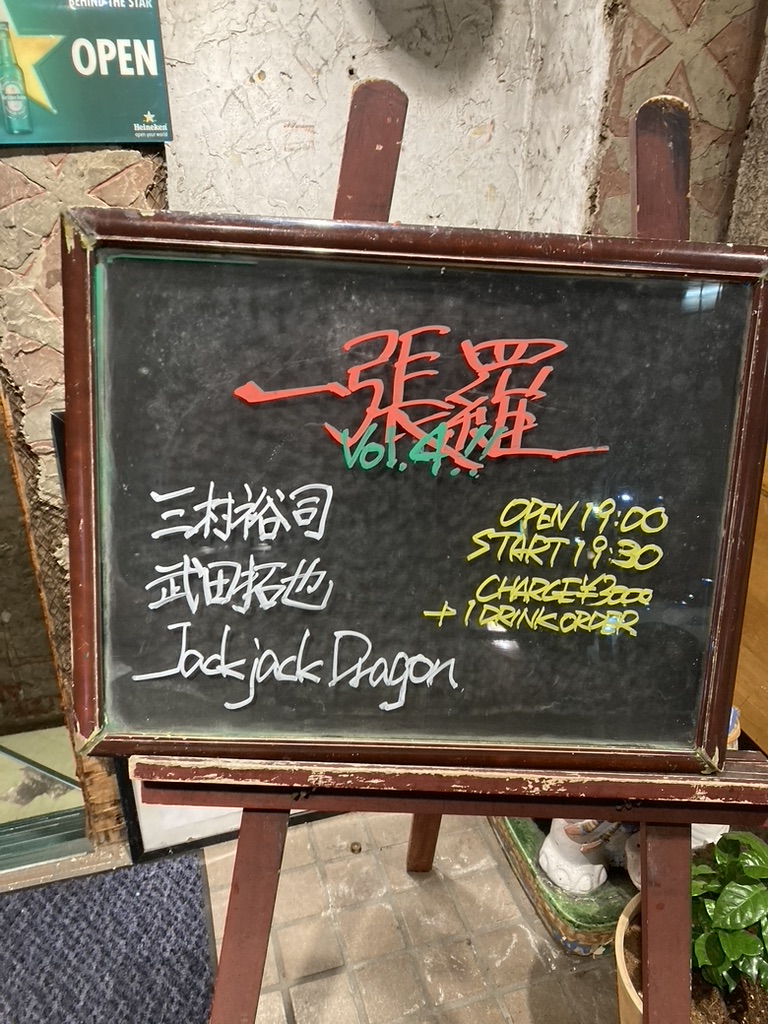 BEHIND THE STAR
OPEN
Heineken
open your world
一張羅
Vol.4!!
三村裕司
武田拓也
Jackjack Dragon
OPEN 19:00
START 19:30
CHARGE ¥3000
+ 1 DRINK ORDER